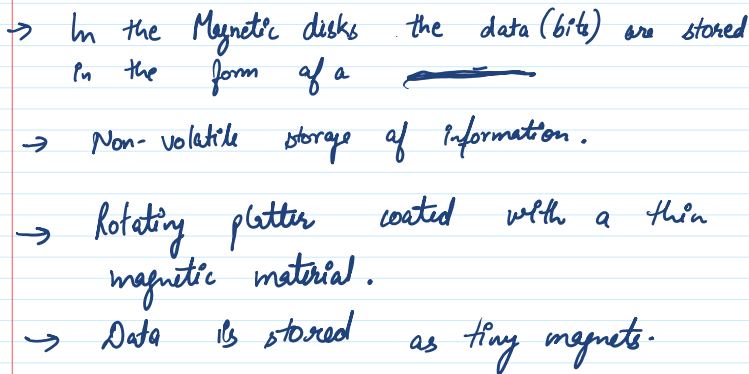 → In the Magnetic disks the data (bits) are stored
in the form of a
→ Non-volatile storage of information.
→ Rotating platter coated with a thin
magnetic material.
→ Data is stored as tiny magnets.